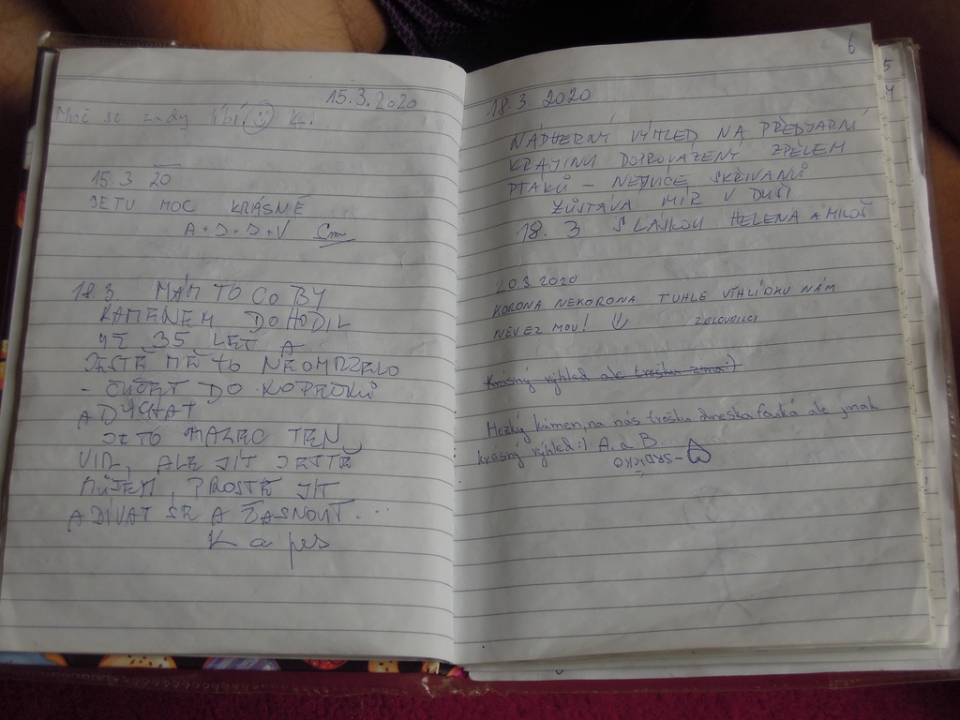 15.3.2020
Moc se tady líbí K.
15.3 20
JE TU MOC KRÁSNĚ
A+D+D+V
18.3. MÁM TO CO BY
KAMENEM DOHODIL
UŽ 35 LET A
JEŠTĚ MĚ TO NEOMRZELO
- ČUČET DO KOPEČKŮ
A DÝCHAT
JE TO MAZEC TEN
VID, ALE JÍT JEŠTĚ
MŮŽEM, PROSTĚ JÍT
A DÍVAT SE A ŽASNOUT...
K a pes
6
18.3 2020
NÁDHERNÝ VÝHLED NA PŘEDJARNÍ
KRAJINU DOPROVÁZENÝ ZPĚVEM
PTÁKŮ - NEJVÍCE SKŘIVANŮ
ZŮSTÁVÁ MÍR V DUŠI
18. 3 S LÁSKOU HELENA A MILOŠ
20.3.2020
KORONA NEKORONA TUHLE VÝHLÍDKU NÁM
NEVEZMOU!
Krásný výhled ale trošku zima:)
Hezký kámen, na nás trošku dneska fouká ale jinak
krásný výhled:) A. a B.
5
4